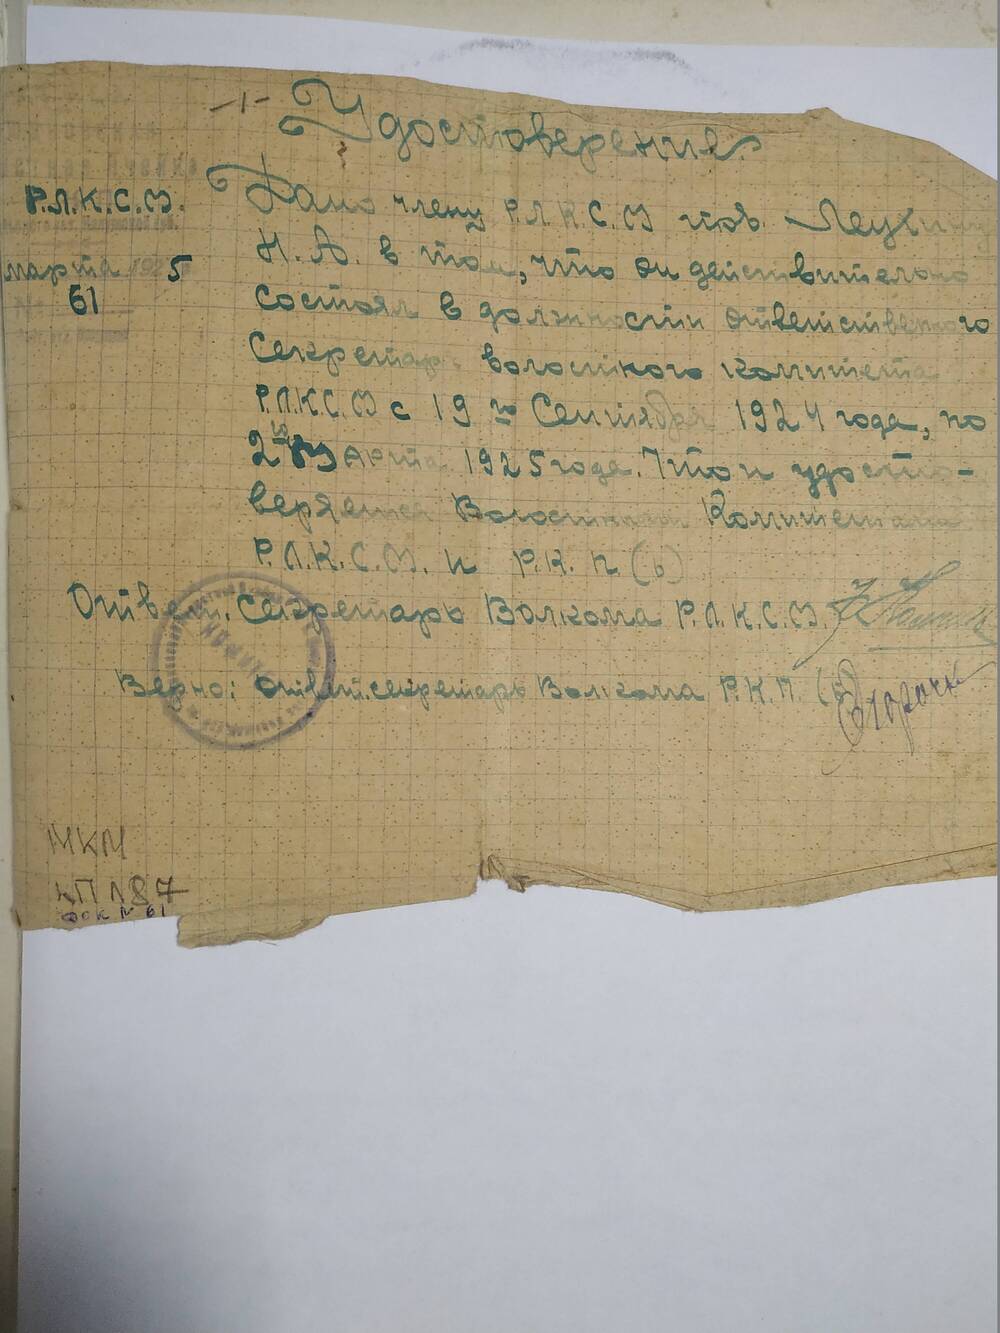 -1-
Удостоверение.
Р.Л.К.С.М.
марта 1925
61
Дано члену Р.Л.К.С.М тов. Леухину
Н.А. в том, что он действительно
состоял в должности ответственного
Секретар волостного комитета
Р.Л.К.С.М с 19 го Сентября 1924 года, по
2 Марта 1925 года. Что и удосто-
веряется Волостным Комитетами
Р.Л.К.С.М. и Р.К.П (б)
Ответ. секретарь Волкома Р.Л.К.С.М.
Верно: ответ. секретарь Волкома Р.К.П. (б)
МКМ
КП 187
док № 61